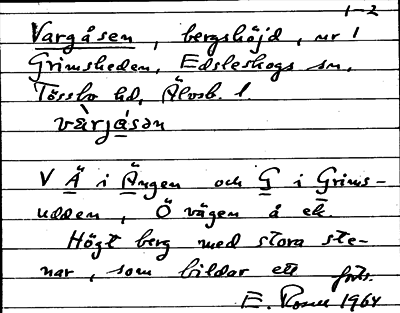 1-2
Vargåsen, bergshöjd, nr 1
Grimsheden, Edsleskogs sn,
Tössbo hd, Älvsb. l.
vàrjåsən
V Ä i Ängen och G i Grims-
udden, Ö vägen å ek.
Högt berg med stora ste-
nar, som bildar ett forts.
E. Rosell 1964